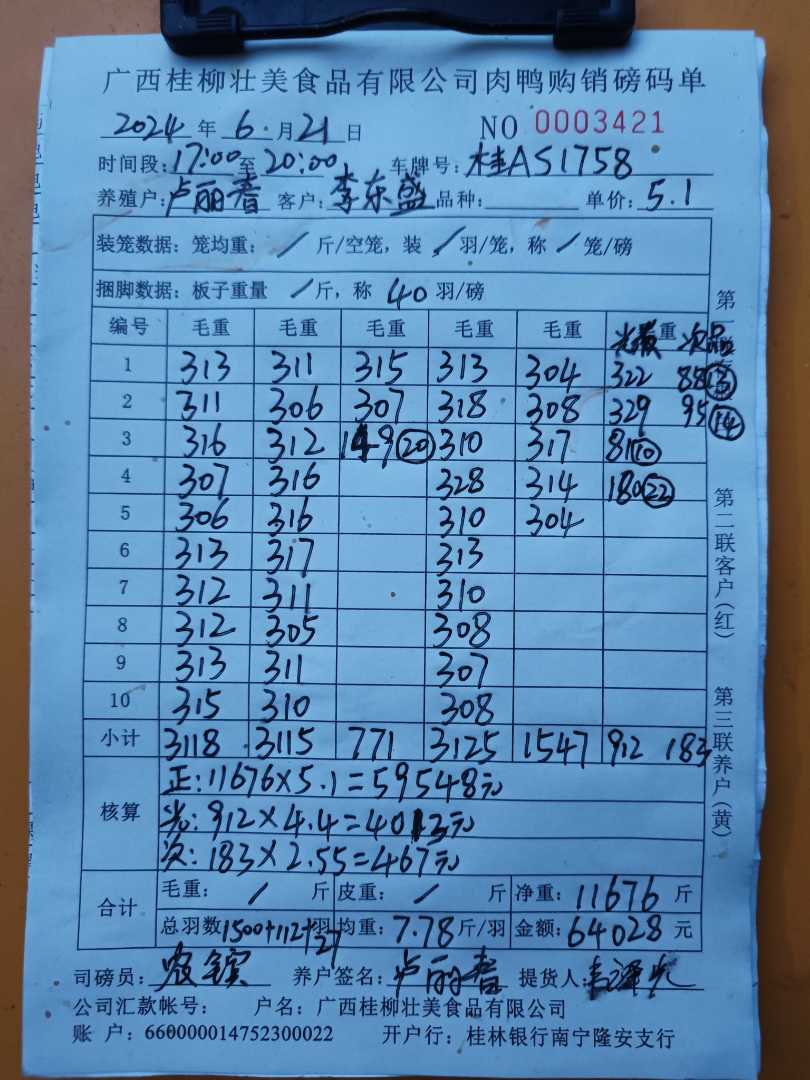 广西桂柳壮美食品有限公司肉鸭购销磅码单
2024 年 6 月 21 日 NO 0003421
时间段: 17:00 至 20:00 车牌号: 桂AS1758
养殖户: 卢丽春 客户: 李东盛 品种: 单价: 5.1
装笼数据: 笼均重: / 斤/空笼, 装 / 羽/笼, 称 / 笼/磅
捆脚数据: 板子重量 / 斤, 称 40 羽/磅
编号 毛重 毛重 毛重 毛重 毛重 重 次品
1 313 311 315 313 304 322 88
2 311 306 307 318 308 329 95 14
3 316 312 149 20 310 317 81 10
4 307 316 328 314 180 22
5 306 316 310 304
6 313 317 313
7 312 311 310
8 312 305 308
9 313 311 307
10 315 310 308
小计 3118 3115 771 3125 1547 912 183
核算
正: 11676×5.1=59548元
光: 912×4.4=4013元
次: 183×2.55=467元
合计
毛重: / 斤 皮重: / 斤 净重: 11676 斤
总羽数 1500+112+27 羽 均重: 7.78 斤/羽 金额: 64028 元
司磅员: 农镔 养户签名: 卢丽春 提货人:
公司汇款帐号: 户名: 广西桂柳壮美食品有限公司
账 户: 660000014752300022 开户行: 桂林银行南宁隆安支行
第二联客户(红)
第三联养户(黄)